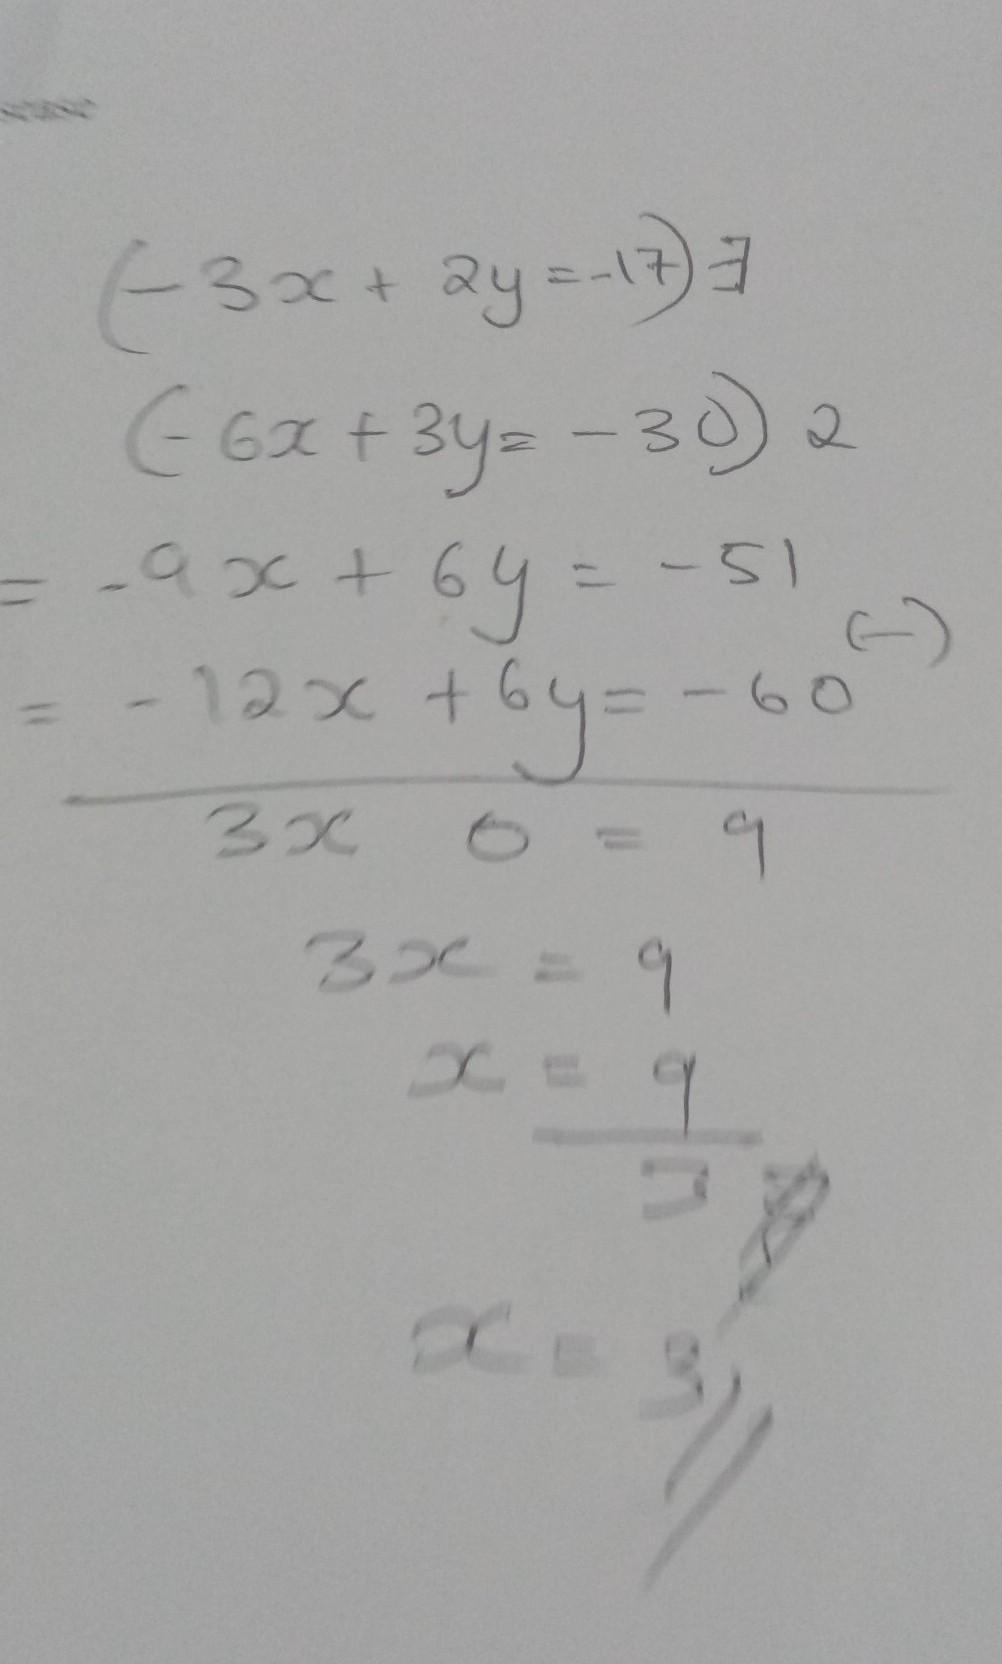 (-3x + 2y = -17) 3
(-6x + 3y = -30) 2
= -9x + 6y = -51
(-)
= -12x + 6y = -60
3x 0 = 9
3x = 9
x = 9
3
x = 3